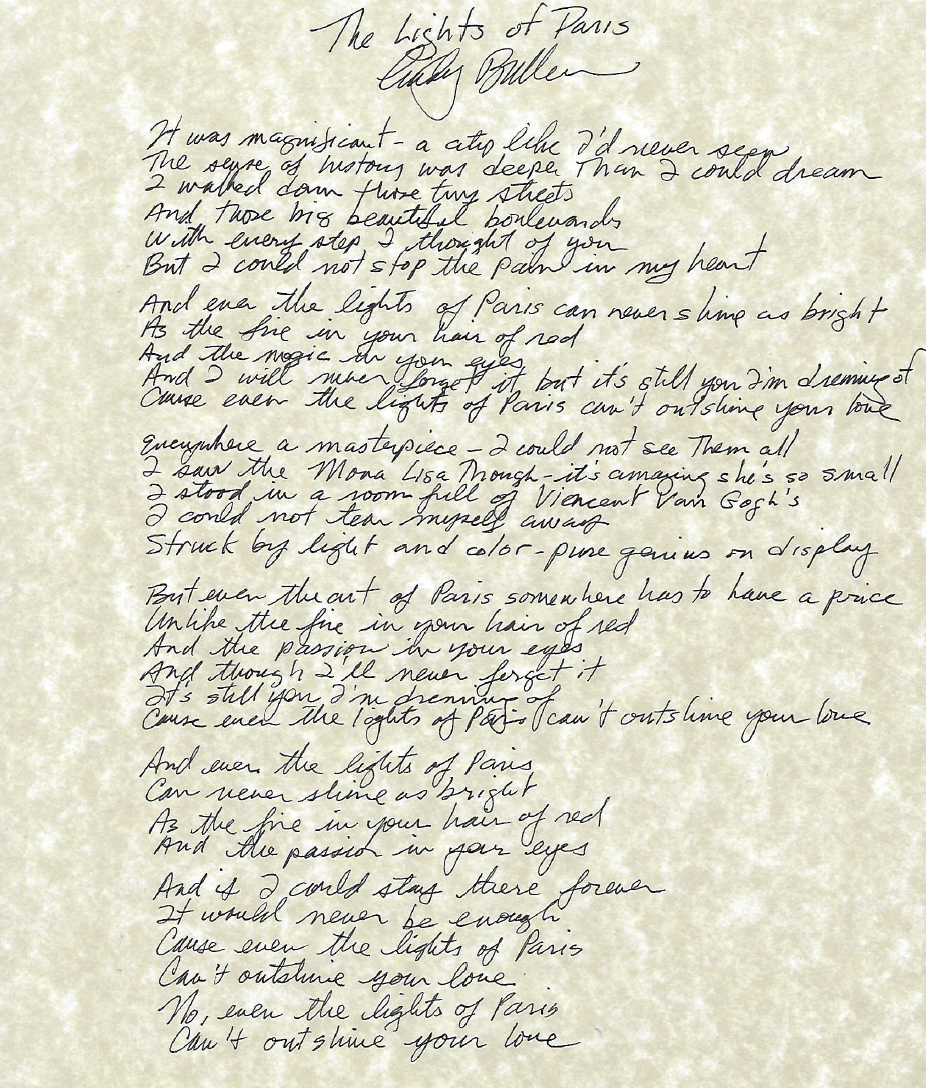 The Lights of Paris
Cindy Bullens
It was magnificent - a city like I'd never seen
The sense of history was deeper Than I could dream
I walked down those tiny streets
And those big beautiful boulevards
With every step I thought of you
But I could not stop the pain in my heart
And even the lights of Paris can never shine as bright
As the fire in your hair of red
And the magic in your eyes
And I will never forget it but it's still you I'm dreaming of
Cause even the lights of Paris can't outshine your love
Everywhere a masterpiece - I could not see Them all
I saw the Mona Lisa Though - it's amazing she's so small
I stood in a room full of Viencent Van Gogh's
I could not tear myself away
Struck by light and color - pure genius on display
But even the art of Paris somewhere has to have a price
Unlike the fire in your hair of red
And the passion in your eyes
And though I'll never forget it
It's still you I'm dreaming of
Cause even the lights of Paris can't outshine your love
And even the lights of Paris
Can never shine as bright
As the fire in your hair of red
And the passion in your eyes
And if I could stay there forever
It would never be enough
Cause even the lights of Paris
Can't outshine your love
No, even the lights of Paris
Can't outshine your love